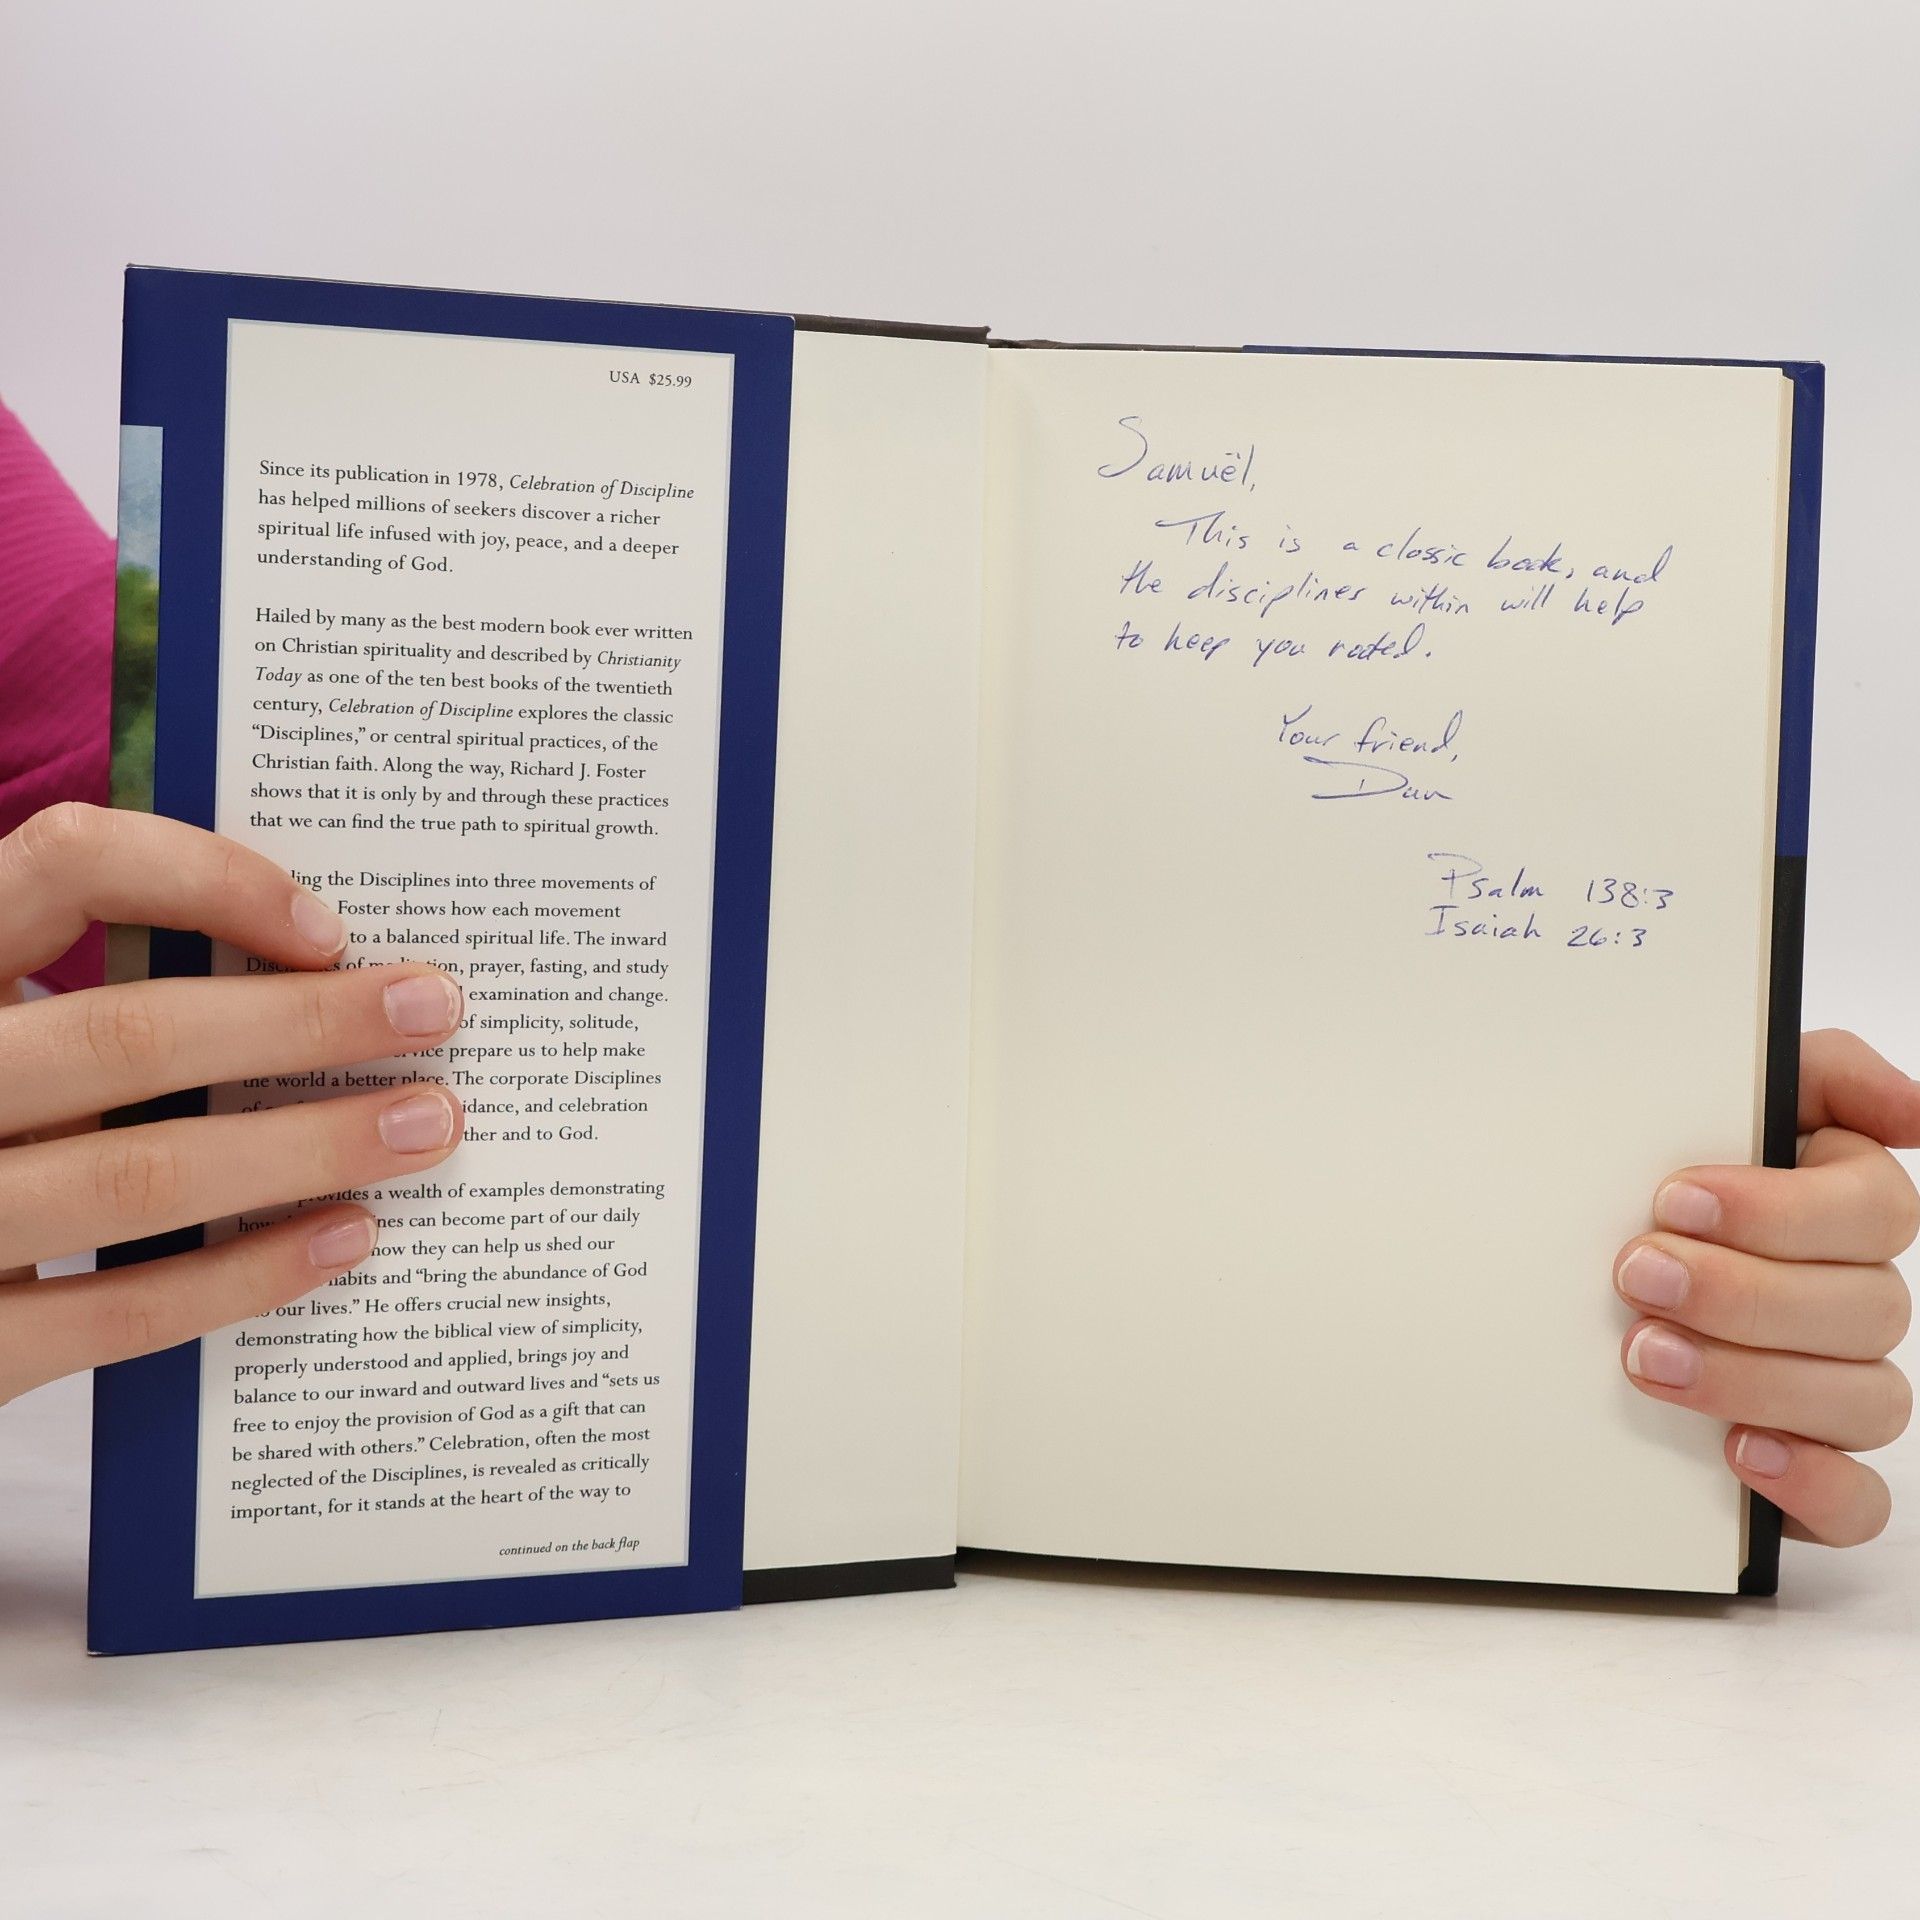 USA $25.99
Since its publication in 1978, Celebration of Discipline
has helped millions of seekers discover a richer
spiritual life infused with joy, peace, and a deeper
understanding of God.
Hailed by many as the best modern book ever written
on Christian spirituality and described by Christianity
Today as one of the ten best books of the twentieth
century, Celebration of Discipline explores the classic
“Disciplines,” or central spiritual practices, of the
Christian faith. Along the way, Richard J. Foster
shows that it is only by and through these practices
that we can find the true path to spiritual growth.
the Disciplines into three movements of
Foster shows how each movement
to a balanced spiritual life. The inward
of prayer, fasting, and study
examination and change.
of simplicity, solitude,
prepare us to help make
the world a better place. The corporate Disciplines
and celebration
and to God.
provides a wealth of examples demonstrating
can become part of our daily
how they can help us shed our
habits and “bring the abundance of God
our lives.” He offers crucial new insights,
demonstrating how the biblical view of simplicity,
properly understood and applied, brings joy and
balance to our inward and outward lives and “sets us
free to enjoy the provision of God as a gift that can
be shared with others.” Celebration, often the most
neglected of the Disciplines, is revealed as critically
important, for it stands at the heart of the way to
continued on the back flap
Samuël,
This is a classic book, and
the disciplines within will help
to keep you rooted.
Your friend,
Dan
Psalm 138:3
Isaiah 26:3